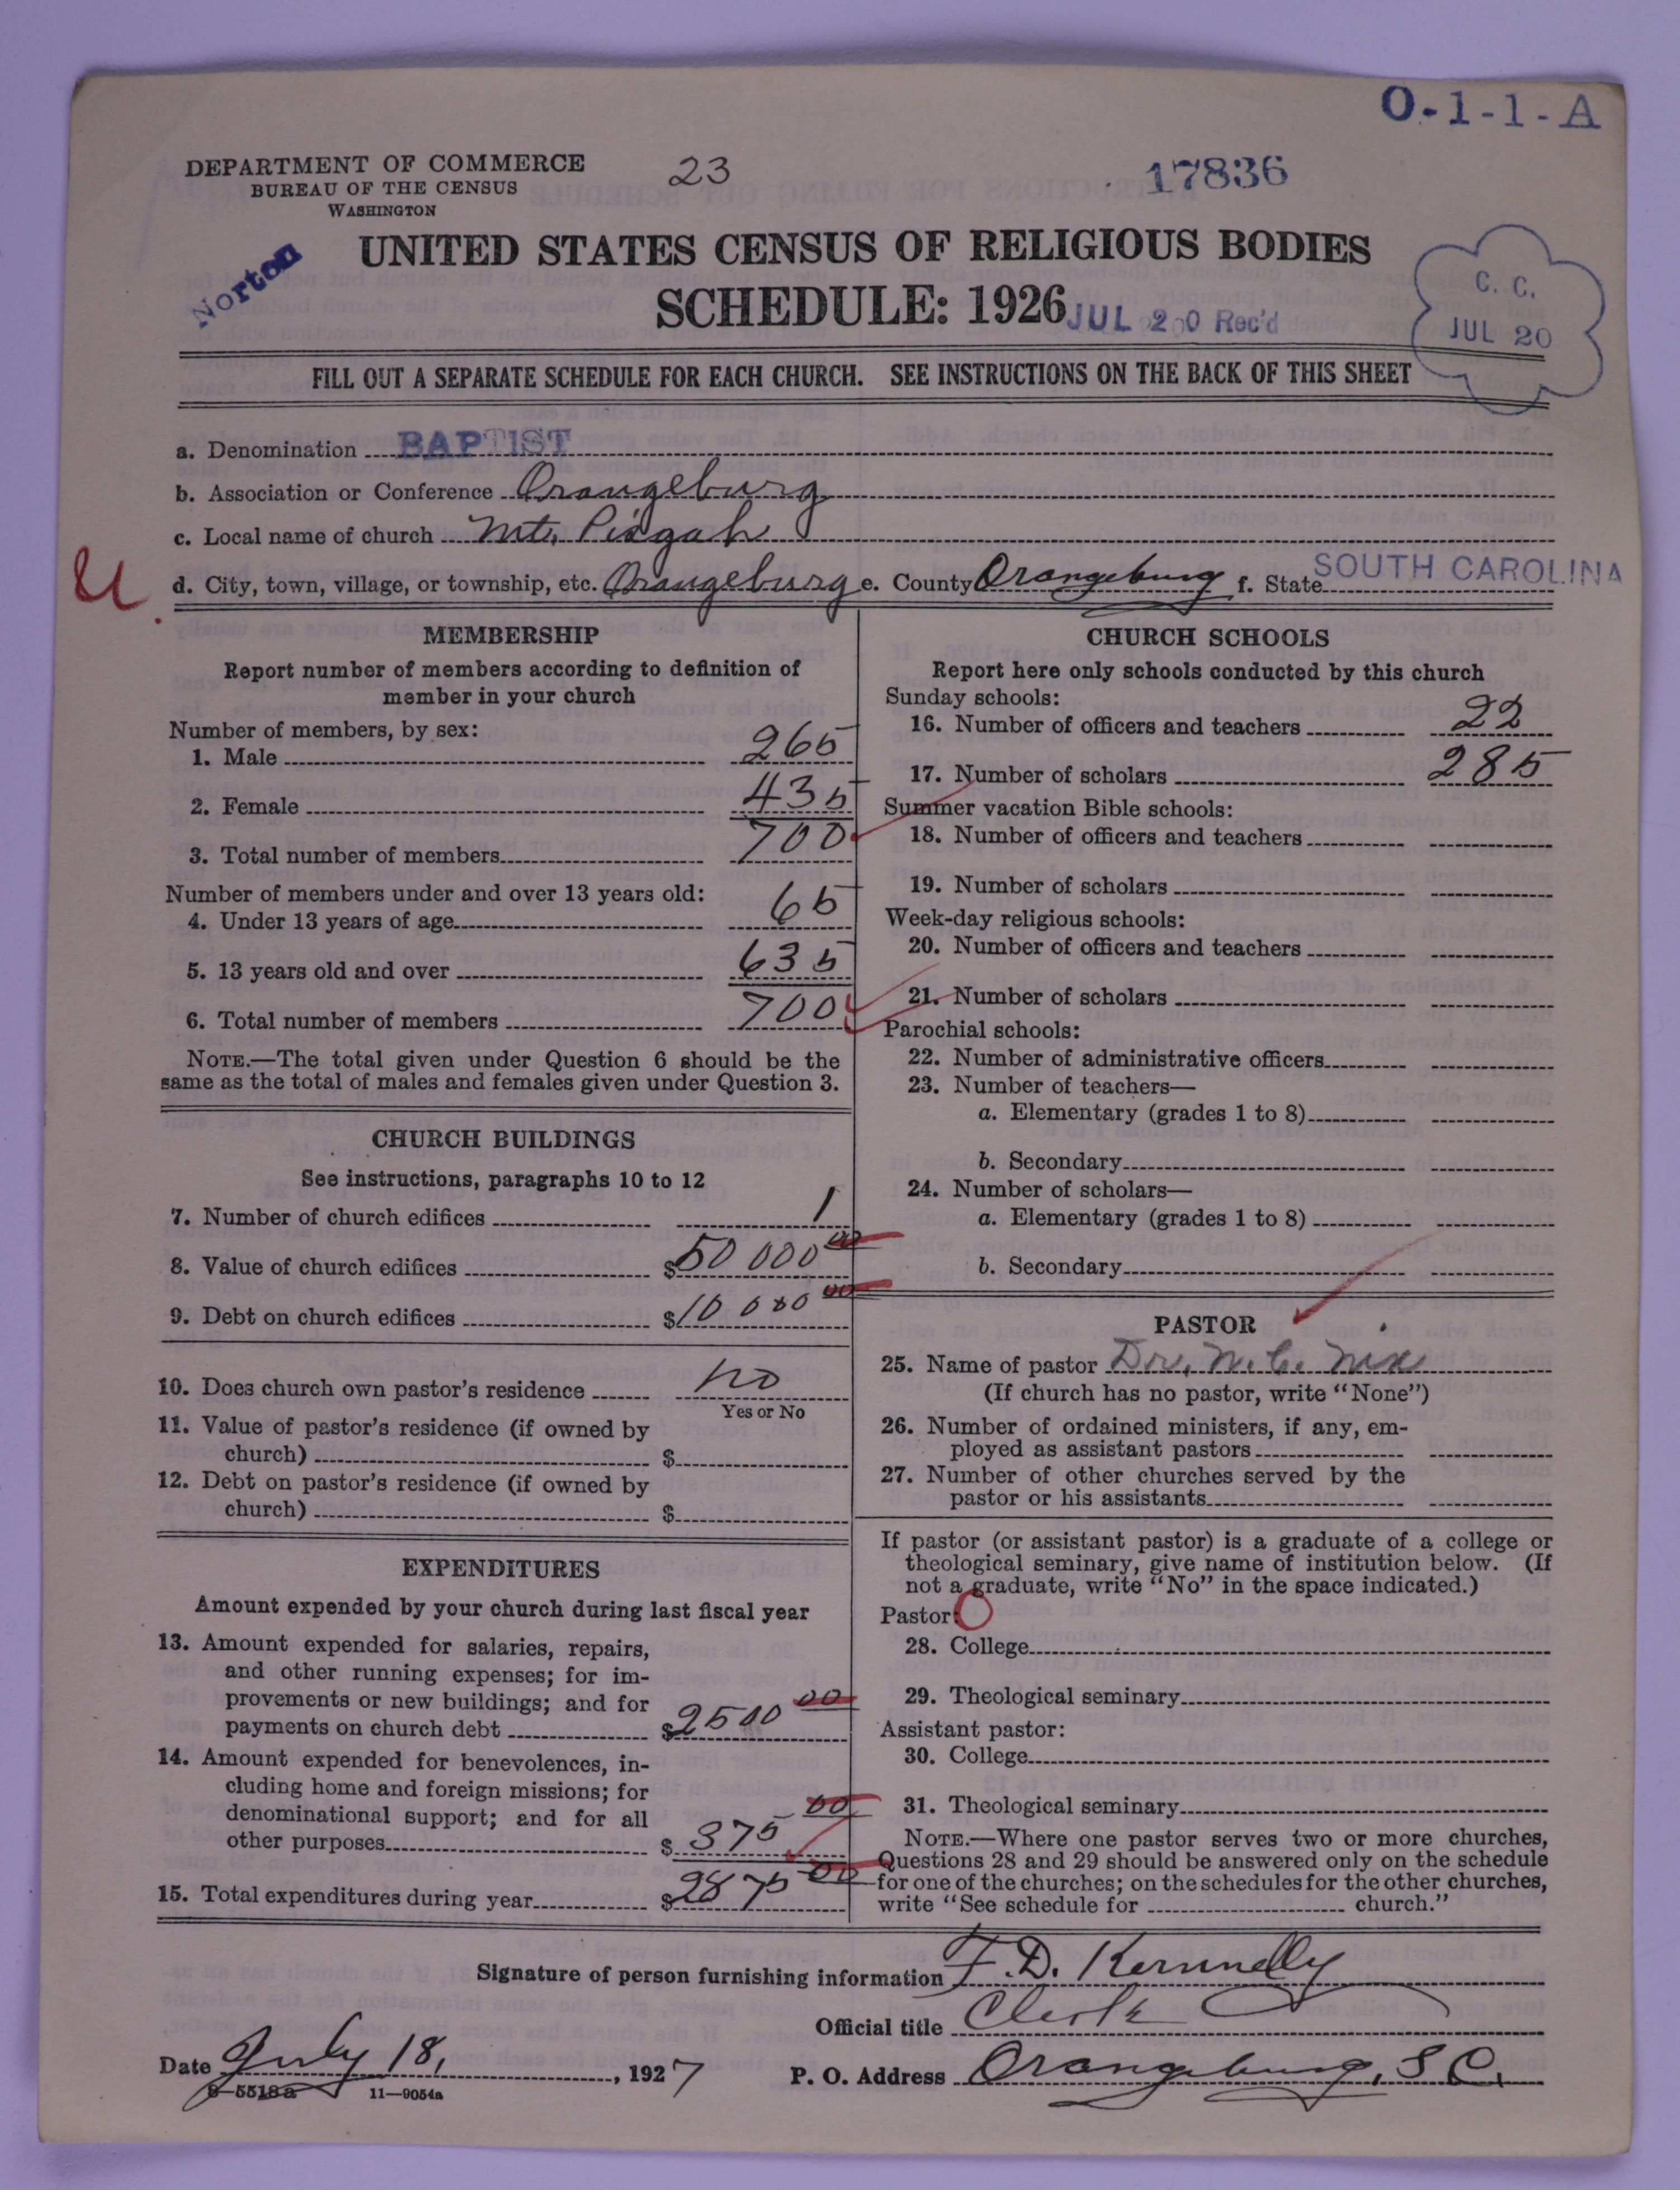 O-1-1-A
DEPARTMENT OF COMMERCE
BUREAU OF THE CENSUS
WASHINGTON
23
17836
Norton
UNITED STATES CENSUS OF RELIGIOUS BODIES
SCHEDULE: 1926
JUL 20 Rec'd
C. C.
JUL 20
FILL OUT A SEPARATE SCHEDULE FOR EACH CHURCH. SEE INSTRUCTIONS ON THE BACK OF THIS SHEET
a. Denomination BAPTIST
b. Association or Conference Orangeburg
c. Local name of church Mt. Pisgah
U.
d. City, town, village, or township, etc. Orangeburg e. County Orangeburg f. State SOUTH CAROLINA
MEMBERSHIP
Report number of members according to definition of
member in your church
Number of members, by sex:
1. Male 265
2. Female 435
3. Total number of members 700
Number of members under and over 13 years old:
4. Under 13 years of age 65
5. 13 years old and over 635
6. Total number of members 700
NOTE.—The total given under Question 6 should be the
same as the total of males and females given under Question 3.
CHURCH BUILDINGS
See instructions, paragraphs 10 to 12
7. Number of church edifices 1
8. Value of church edifices $50 000 00
9. Debt on church edifices $10 000 00
10. Does church own pastor's residence no
Yes or No
11. Value of pastor's residence (if owned by
church) $
12. Debt on pastor's residence (if owned by
church) $
EXPENDITURES
Amount expended by your church during last fiscal year
13. Amount expended for salaries, repairs,
and other running expenses; for im-
provements or new buildings; and for
payments on church debt $2500 00
14. Amount expended for benevolences, in-
cluding home and foreign missions; for
denominational support; and for all
other purposes $ 375 00
15. Total expenditures during year $2875 00
CHURCH SCHOOLS
Report here only schools conducted by this church
Sunday schools:
16. Number of officers and teachers 22
17. Number of scholars 285
Summer vacation Bible schools:
18. Number of officers and teachers
19. Number of scholars
Week-day religious schools:
20. Number of officers and teachers
21. Number of scholars
Parochial schools:
22. Number of administrative officers
23. Number of teachers—
a. Elementary (grades 1 to 8)
b. Secondary
24. Number of scholars—
a. Elementary (grades 1 to 8)
b. Secondary
PASTOR
25. Name of pastor Dr. N. C. Nix
(If church has no pastor, write "None")
26. Number of ordained ministers, if any, em-
ployed as assistant pastors
27. Number of other churches served by the
pastor or his assistants
If pastor (or assistant pastor) is a graduate of a college or
theological seminary, give name of institution below. (If
not a graduate, write "No" in the space indicated.)
Pastor:
28. College
29. Theological seminary
Assistant pastor:
30. College
31. Theological seminary
NOTE.—Where one pastor serves two or more churches,
Questions 28 and 29 should be answered only on the schedule
for one of the churches; on the schedules for the other churches,
write "See schedule for church."
Signature of person furnishing information F. D. Kennedy
Official title Clerk
Date July 18, 1927
P. O. Address Orangeburg, S. C.
8—5518a 11—9054a